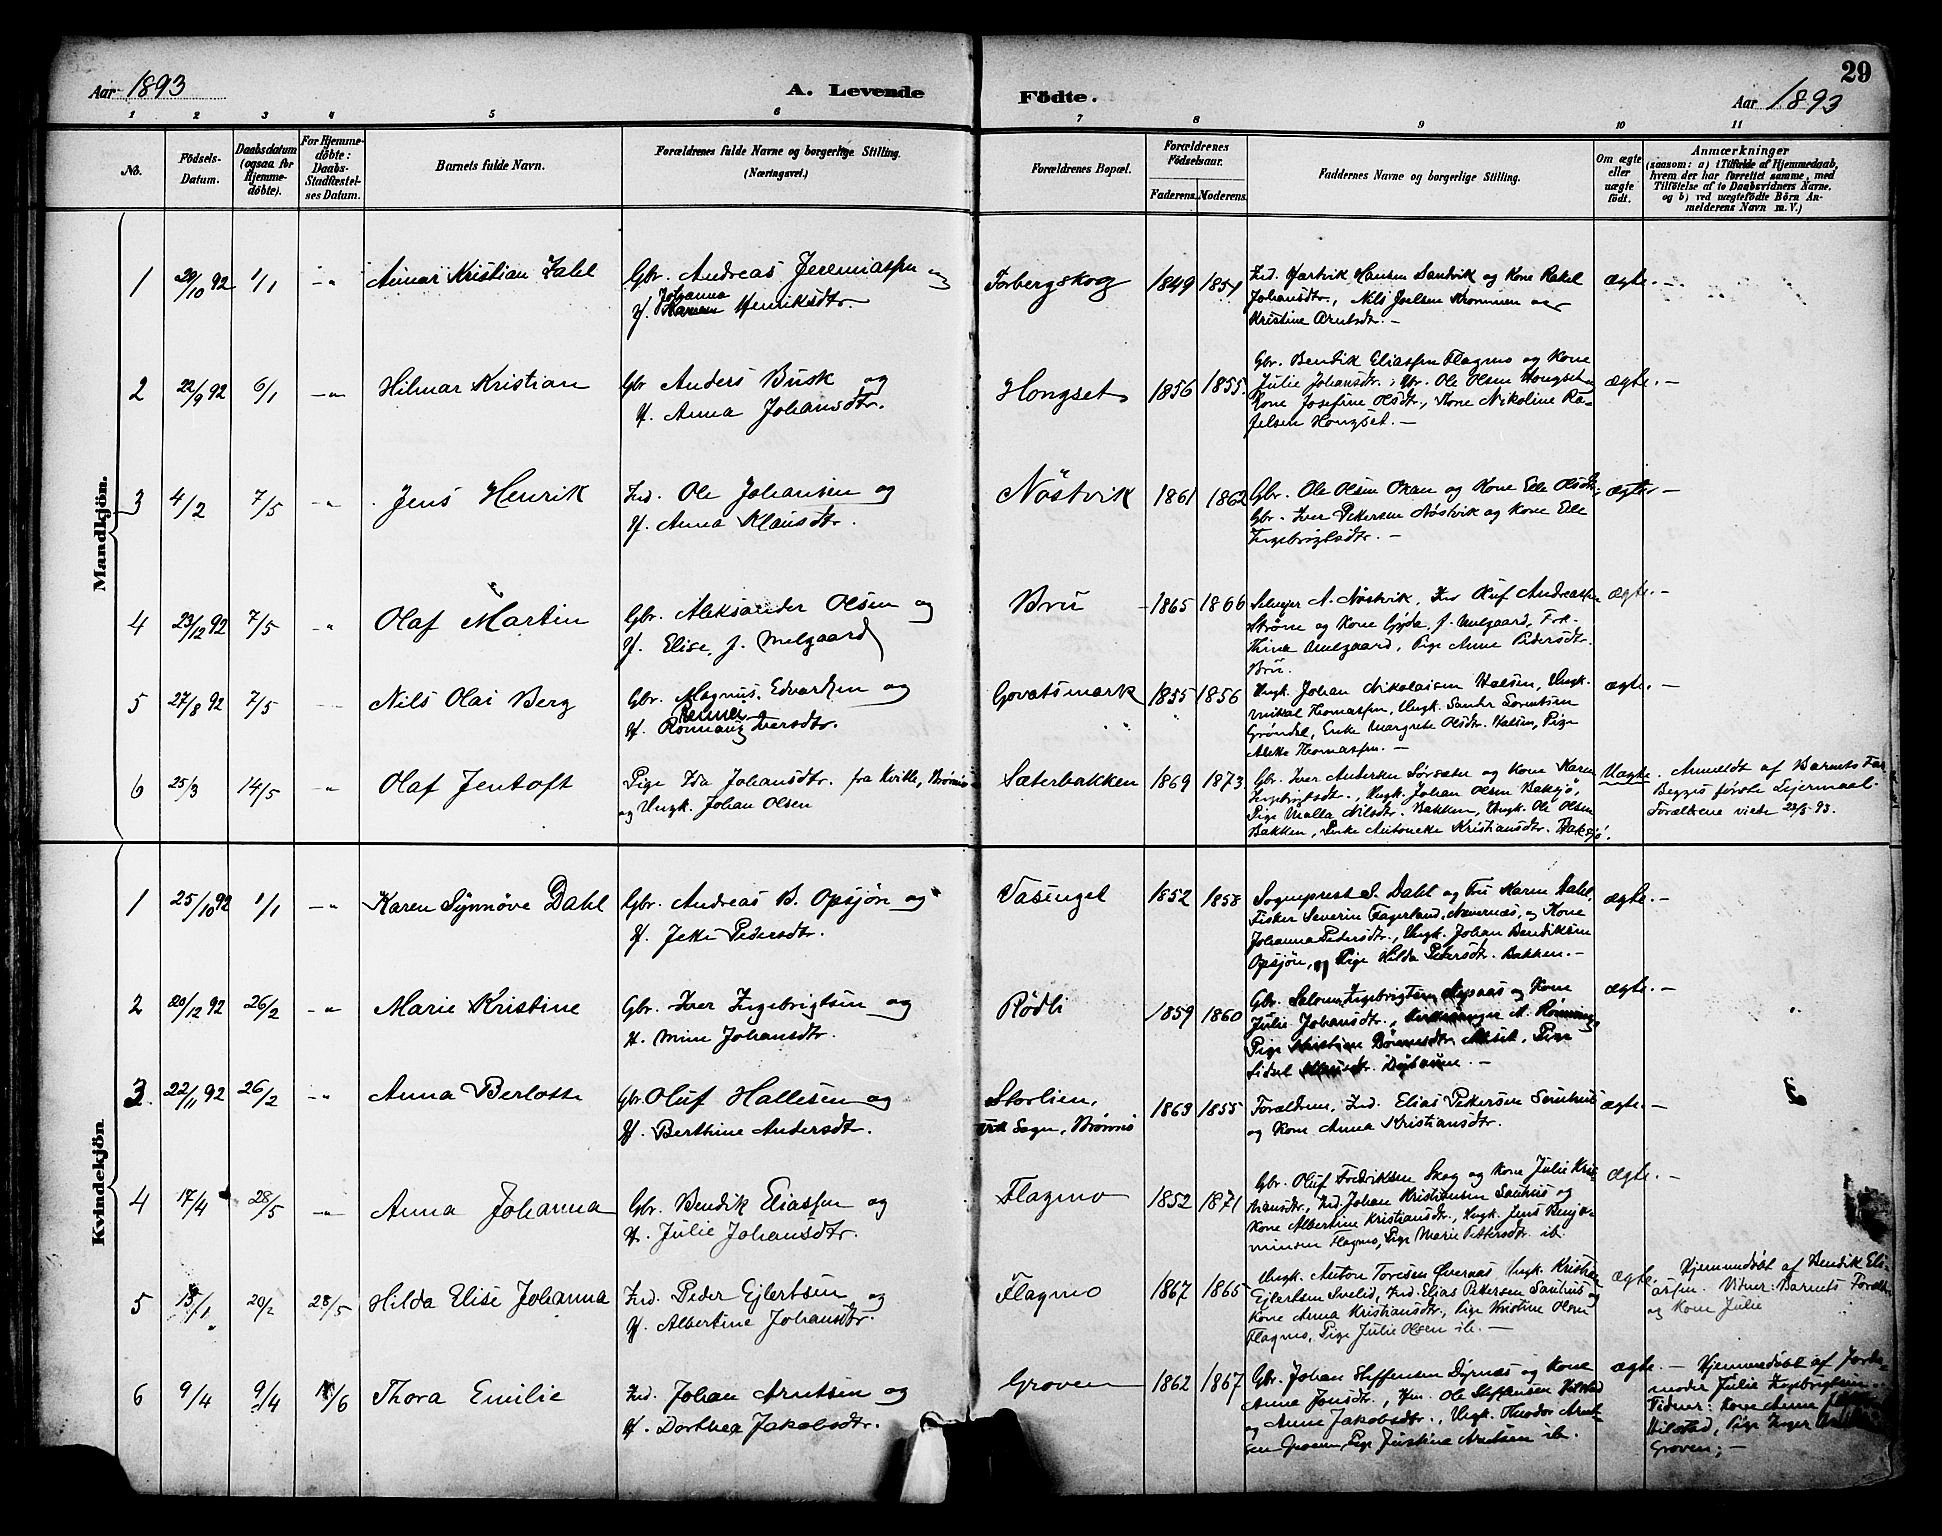 29
Aar 1893
A. Levende Födte.
Aar 1893
1 2 3 4 5 6 7 8 9 10 11
No.
Födsels-Datum.
Daabsdatum (ogsaa for Hjemmedöbte).
For Hjemmedöbte: Daabs-Stadfæstelses Datum.
Barnets fulde Navn.
Forældrenes fulde Navne og borgerlige Stilling. (Næringsvei.)
Forældrenes Bopæl.
Forældrenes Födselsaar.
Faderens. Moderens.
Faddernes Navne og borgerlige Stilling.
Om ægte eller uægte födt.
Anmærkninger
(saasom: a) i Tilfælde af Hjemmedaab, hvem der har forrettet samme, med Tilföielse af to Daabsvidners Navne, og b) ved uægtefödte Börn Anmelderens Navn m. V.)
Mandkjön.
1 29/10 92 1/1 -"-
Gbr. Andreas Jeremiassen og
H. Johanna Henriksdtr.
Forbergskog 1849 1854
Ind. Hartvik Hansen Sandvik og Kone Rakel
Johansdtr., Nils Joelsen Krommen og
Kristine Arntsdtr. -
ægte. -
2 22/9 92 6/1 -"- Hilmar Kristian
Gbr Anders Busk og
H. Anna Johansdtr.
Hongset 1856 1855.
Gbr. Bendik Eliassen Flagmo og Kone
Julie Johansdtr., Gbr. Ole Olsen Hongset og
Kone Josefine Olsdtr., Kone Nikoline
Hongset. -
ægte. -
3 4/2 7/5 -"- Jens Henrik
Ind. Ole Johansen og
H. Anna Klausdtr.
Nöstvik 1861 1862
Gbr. Ole Olsen og Kone Elle Olsdtr,
Gbr. Iver Pettersen Nöstvik og Kone Elle
Ingebrigtsdtr. -
ægte -
4 23/12 92 7/5 -"- Olaf Martin
Gbr. Aleksander Olsen og
H. Elise, f. Melgaard
Brü 1865 1866
A. Nöstvik, Oluf Andreassen
og Kone f. Melgaard,
Melgaard, Pige Anne Pedersdtr.
Brü.
ægte. -
5 27/8 92 7/5 Nils Olai Berg
Gbr. Magnus Edvardsen og
H. Iversdtr.
Govatsmark 1855 1856
Ungk. Johan Nikolaisen Halsen, Ungk.
Mikal Thomassen, Ungk. Sorentsen
Gröndal, Enke Margrete Olsdtr. Halsen, Pige
Thomassen. -
ægte. -
6 25/3 14/5 -"- Olaf Jentoft
Pige Ida Johansdtr. fra Kvitle, Brönnö
og Ungk. Johan Olsen
Sæterbakken 1869 1873
Gbr. Iver Andersen Sörsæter og Kone Karen
Ingebrigtsdtr., Ungk. Johan Olsen Baksjö,
Pige Malla Nilsdtr. Bakken, Ungk. Ole Olsen
Bakken, Enke Antonette Kristiansdtr. Baksjö.
Uægte. Anmeldt af Barnets Far
Begges förste Leiermaal.
Forældrene viede 22/5 93.
Kvindekjön
1 25/10 92 1/1 -"- Karen Synnöve Dahl
Gbr. Andreas B. Opsjön og
H. Jette Pedersdtr.
Vasengel 1852 1858
Sogneprest S. Dahl og Fru Karen Dahl,
Fisker Severin Fagerland, Nævernæs, og Kone
Johanna Pedersdtr., Ungk. Johan Bendiksen
Opsjön, og Pige Hilda Pedersdtr. Bakken. -
ægte. -
2 20/12 92 26/2 -"- Marie Kristine
Gbr. Iver Ingebrigtsen og
H. Mine Johansdtr.
Rödli 1859 1860
Gbr. Ingebrigtsen og Kone
Julie Johansdtr.,
Pige
Sidsel
ægte. -
3. 22/11 92 26/2 -"- Anna Berlotte
Gbr. Oluf Hallesen og
H. Berthine Andersdtr.
Storlien,
Sogn, Brönnö
1863 1855
Forældrene, Ind. Elias Pettersen
og Kone Anna Kristiansdtr.
ægte. -
4 17/4 28/5 -"- Anna Johanna
Gbr. Bendik Eliassen og
H. Julie Johansdtr.
Flagmo 1852 1871
Gbr. Oluf Fredriksen Skog og Kone Julie Kris-
tiansdtr., Ind. Johan Kristensen Sauhus og
Kone Albertine Kristiansdtr., Ungk. Jens Benja-
minsen Flagmo, Pige Marie Pettersdtr. ib.
ægte. -
5 15/1 20/2 28/5 Hilda Elise Johanna
Ind. Peder Ejlertsen og
H. Albertine Johansdtr.
Flagmo 1867 1865
Ungk. Anton Toresen Övernæs, Ungk. Kristian
Ejlertsen Svelid, Ind. Elias Pettersen Sauhus og
Kone Anna Kristiansdtr., Pige Kristine Olsen
Flagmo, Pige Julie Olsen ib. -
ægte. Hjemmedöbt af Bendik Eli-
assen. Vidner: Barnets Forældre
og Kone Julie
6 9/4 9/4 /6 Thora Emilie
Ind. Johan Arntsen og
H. Dorthea Jakobsdtr.
Groven 1862 1867
Gbr. Johan Steffensen Dyrnæs og Kone
Anna Jonsdtr., Ole Steffensen
og Anne Jakobsdtr., Ungk. Theodor Arnt-
sen Groven, Pige Justina Arntsen ib.
ægte. - Hjemmedöbt af Jorde-
moder Julie Ingebrigtsen.
Vidner: Kone Anne
Pige Inger
Groven; -